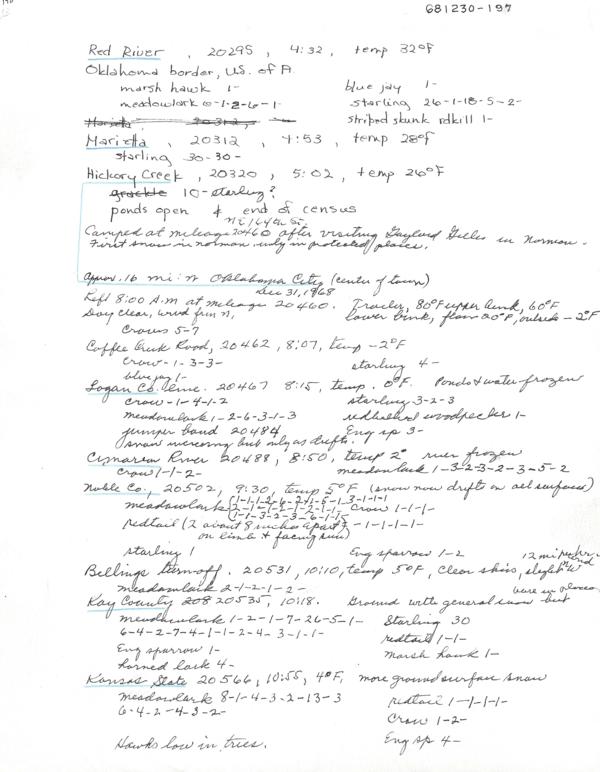 681230-197
Red River , 20295 , 4:32 , temp 32°F
Oklahoma border, U.S. of A.
marsh hawk 1- blue jay 1-
meadowlark 0-1-2-6-1- starling 26-1-18-5-2-
Marietta 20312, striped skunk rdkill 1-
Marietta , 20312 , 4:53 , temp 28°F
starling 30-30-
Hickory Creek , 20320 , 5:02 , temp 26°F
grackle 10-starling?
ponds open & end of census
N. 164th St.
Camped at mileage 20460 after visiting Gaylund Gilles in Norman.
First snow in norman only in protected places.
Approx. 16 mi: n Oklahoma City (center of town)
Dec 31, 1968
Left 8:00 A.M at mileage 20460. Trailer, 80°F upper bunk, 60°F
Day clear, wind from N, lower bunk, floor 20°F, outside -2°F
Crows 5-7
Coffee Creek Road, 20462, 8:07, temp -2°F
Crow-1-3-3- starling 4-
blue jay 1-
Logan Co. line. 20467 8:15, temp. 0°F. Ponds & water frozen
crow-1-4-1-2 starling 3-2-3
meadowlark 1-2-6-3-1-3 redbellied woodpecker 1-
juniper band 20484 Eng sp 3-
snow increasing but only as drifts.
Cimarron River 20488, 8:50, temp 2° river frozen
Crow 1-1-2- meadowlark 1-3-2-3-2-3-5-2
Noble Co., 20502, 9:30, temp 5°F (snow now drifts on all surfaces)
meadowlark Crow 1-1-1-
redtail (2 about 8 inches apart -1-1-1-1-1-
on limb & facing sun)
starling 1 Eng sparrow 1-2 12 mi
Billings turnoff. 20531, 10:10, temp 5°F, clear skies, slight wind
meadowlark 2-1-2-1-2- bare in places
Kay County 208 20535, 10:18. Ground with general snow but
meadowlark 1-2-1-7-26-5-1- Starling 30
6-4-2-7-4-1-1-2-4- 3-1-1- redtail 1-1-
Eng sparrow 1- Marsh hawk 1-
horned lark 4-
Kansas State 20566, 10:55, 4°F, more ground surface snow
meadowlark 8-1-4-3-2-13-3 redtail 1-1-1-1-
6-4-2-4-3-2- Crow 1-2-
Hawks low in trees. Eng sp 4-